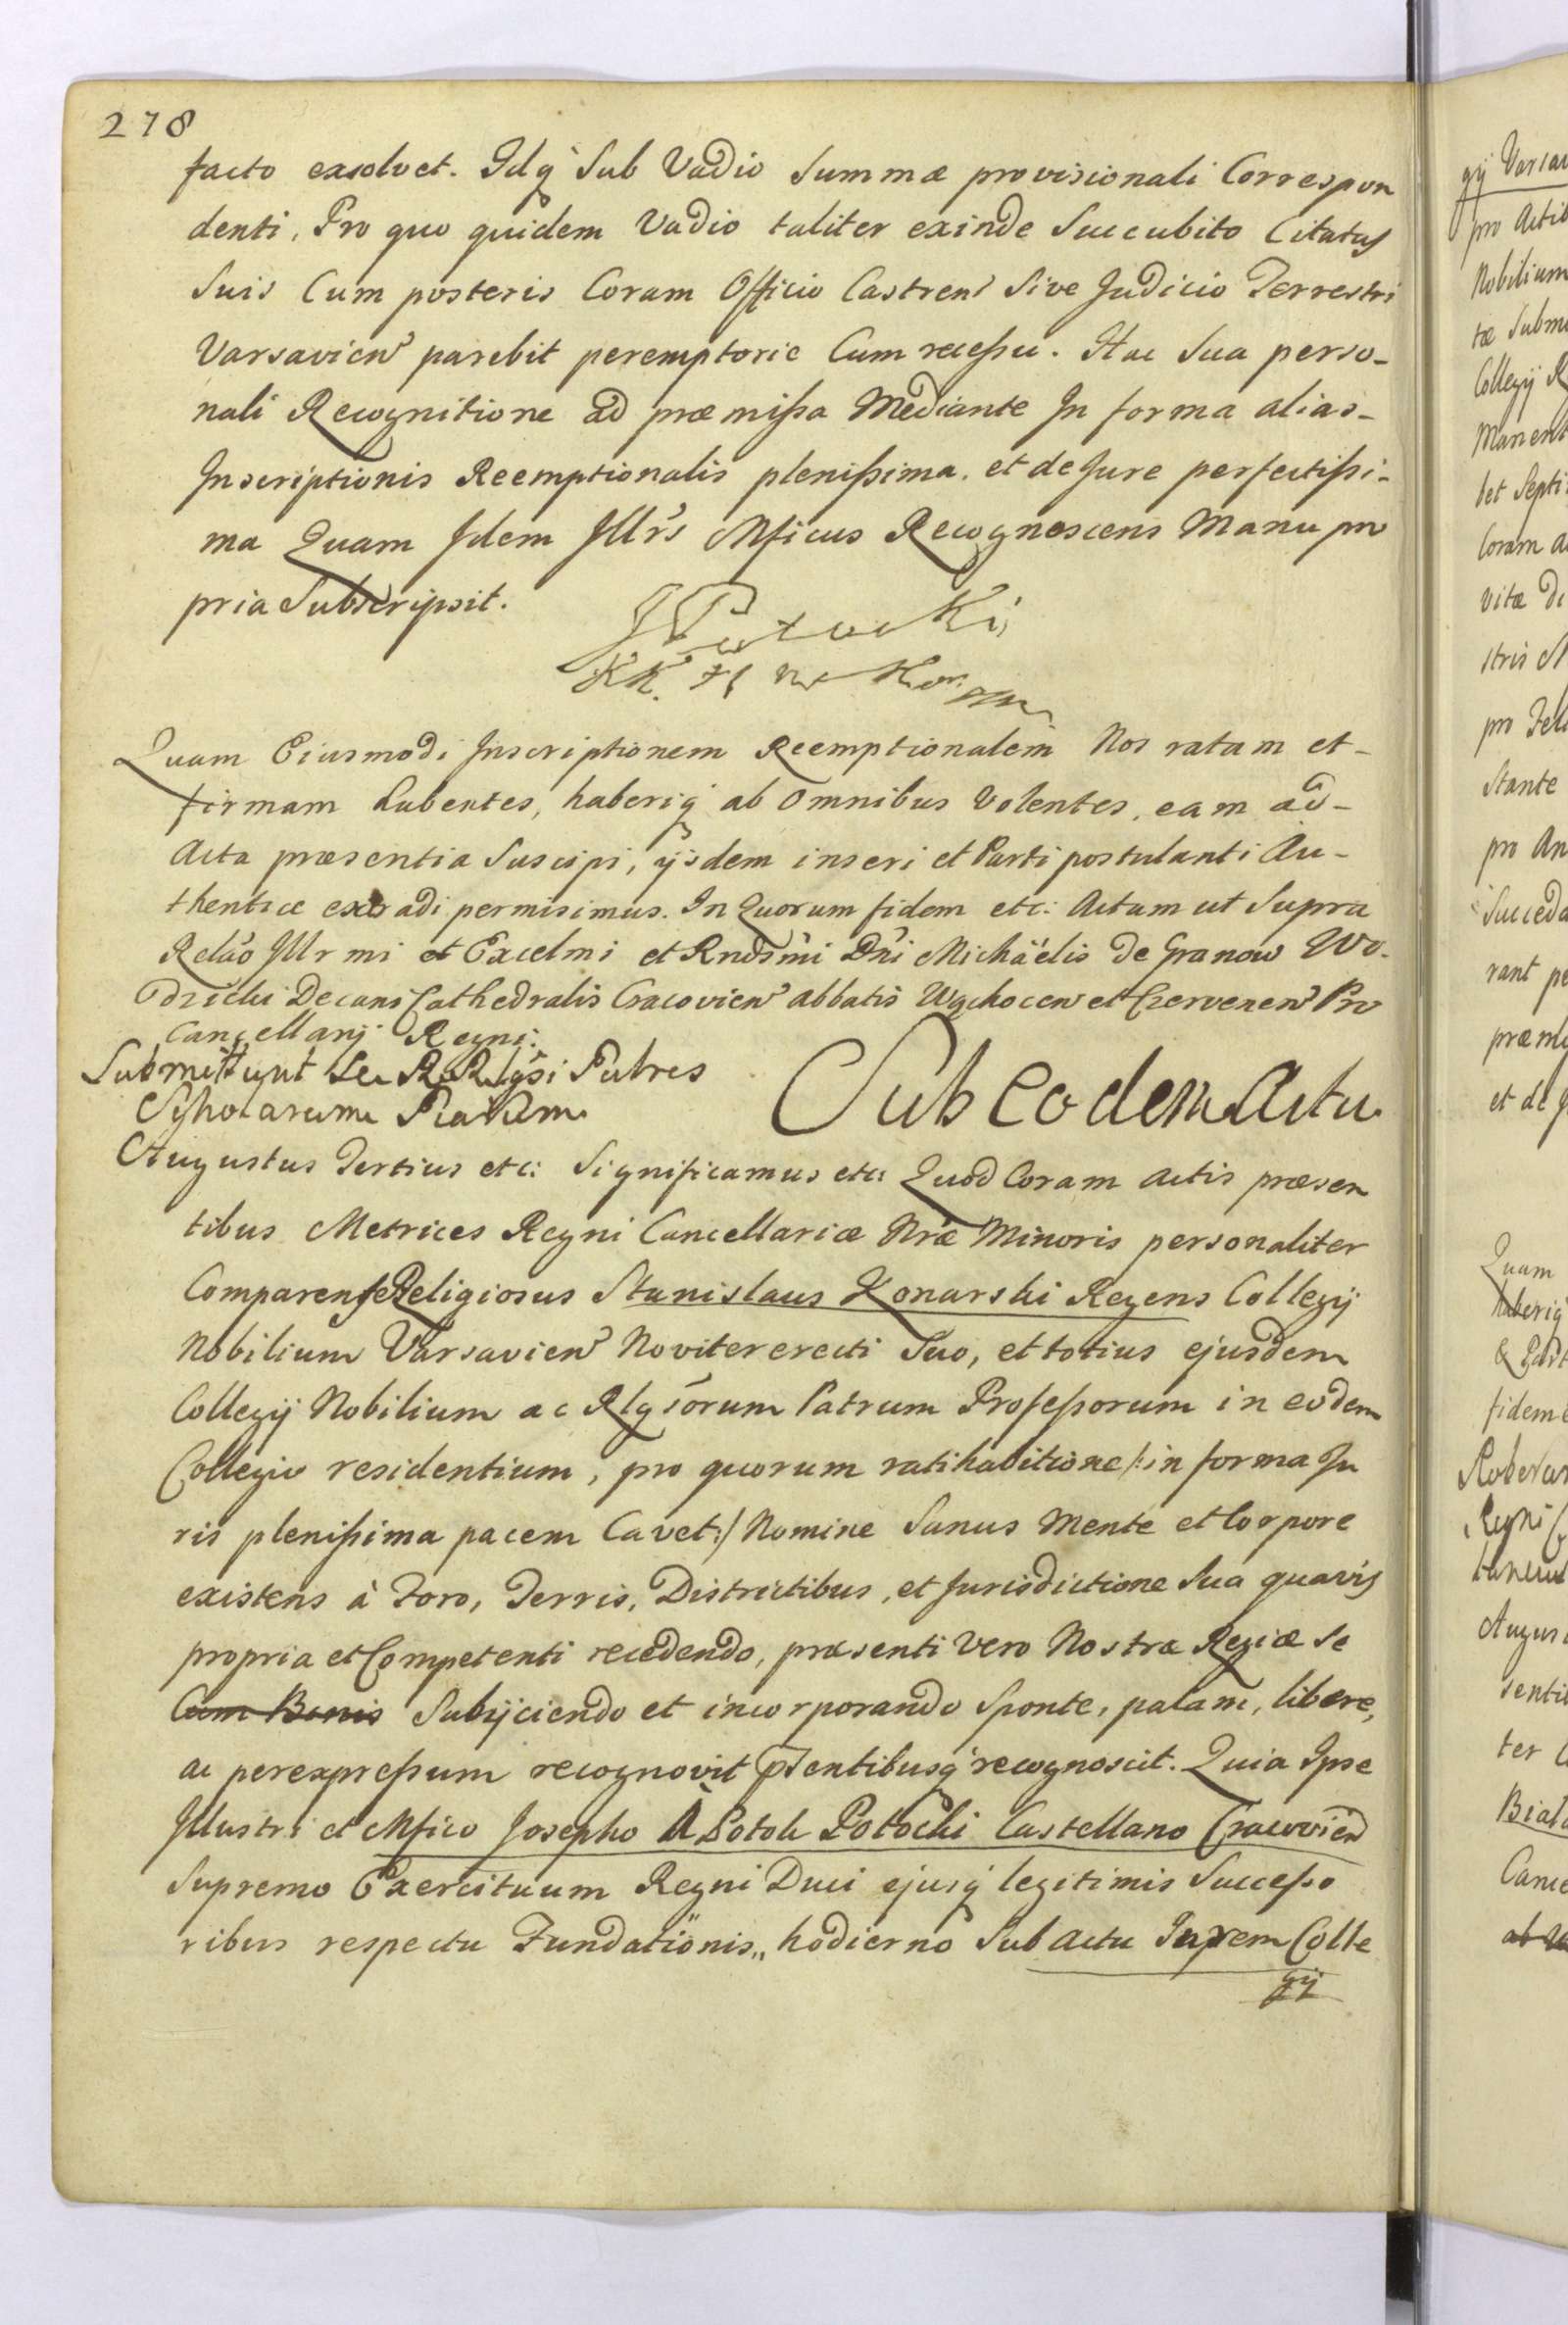 278
facto exsolvet. Idq́ Sub Vadio Summæ provisionali Correspon
denti, Pro quo quidem Vadio taliter exinde Succubito Citatus
Suis Cum posteris Coram Officio Castren̄ Sive Judicio Terrestri
Varsavien̄ parebit peremptorie Cum recessu. Hac Sua perso-
nali Recognitione ad præmissa Mediante In forma alias-
Inscriptionis Reemptionalis plenissima. et de Jure perfectissi-
ma Quam Idem Illr̄s Mficus Recognoscens Manu pro
pria Subscripsit.
JPotocki
KK. H W Kor
Quam Eiusmodi Inscriptionem Reemptionalem Nos ratam et-
firmam Lubentes, haberiq́ ab Omnibus Volentes, eam ad-
Acta præsentia Suscipi, ijsdem inseri et Parti postulanti Au-
thentice extradi permisimus. In Quorum fidem etc: Actum ut Supra
Relāo Illrmi et Excelmi et Rndsm̄i Dn̄i Michäelis de Granow Wo-
dzicki Decani Cathedralis Cracovien̄ abbatis Wąchocen̄ et Czervenen̄ Pro
Cancellarij Regni:
Submittunt Se RR Rlgśi Patres
Scholarum Piarum
Sub eodem Actu
Augustus Tertius etc: Significamus etc: Quod Coram Actis præsen
tibus Metrices Regni Cancellariæ Nr̄æ Minoris personaliter
Comparens Religiosus Stanislaus Konarski Regens Collegij
Nobilium Varsavien̄ Noviter erecti Suo, et totius ejusdem
Collegij Nobilium ac Rlgśorum Patrum Professorum in eodem
Collegio residentium, pro quorum ratihabitione /: in forma Ju
ris plenissima pacem Cavet:/ Nomine Sanus Mente et Corpore
existens à Foro, Terris, Districtibus, et Jurisdictione Sua quavis
propria et Competenti recedendo, præsenti vero Nostræ Regiæ Se
Cum Bonis Subijciendo et incorporando Sponte, palam, libere,
ac per expressum recognovit pr̄sentibusq́ recognoscit. Quia Ipse
Illustri et Mfico Josepho à Potok Potocki Castellano Cracovien̄
Supremo Exercituum Regni Duci ejusq́ legitimis Successo
ribus respectu Fundationis,, hodierno Sub actu Inrem Colle
gij